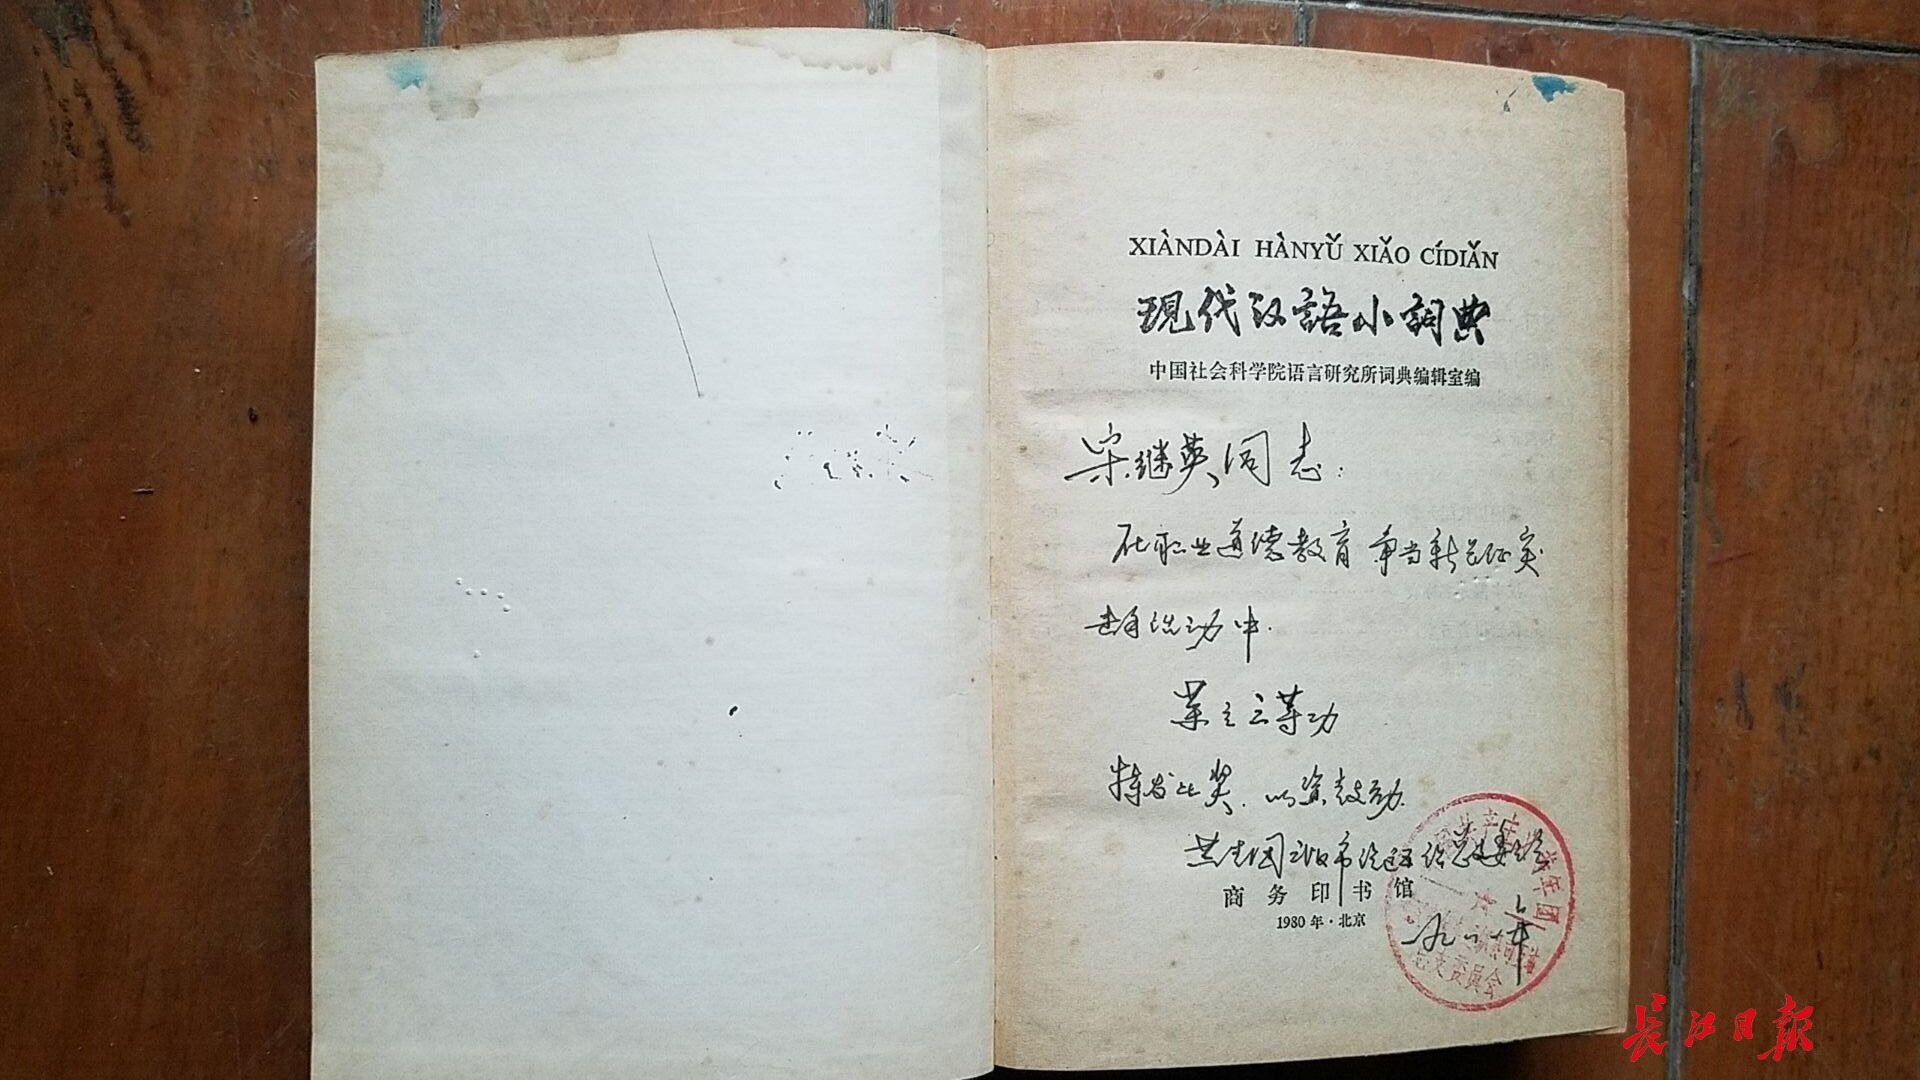 XIÀNDÀI HÀNYǓ XIǍO CÍDIǍN
现代汉語小詞典
中国社会科学院语言研究所词典编辑室编
宋继英同志:
在职业道德教育争当新长征突
击手活动中.
荣立三等功
特发此奖.以资鼓励.
共青团 市 总支委会
商务印书馆
1980年·北京
一九八 年
共产主义青年团
总支委员会
长江日报